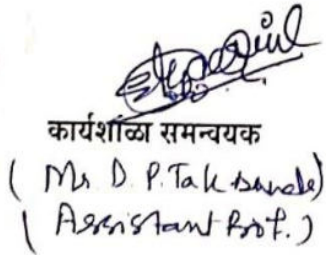 कार्यशाळा समन्वयक
( Mr D. P. Taksande)
( Assistant Prof. )